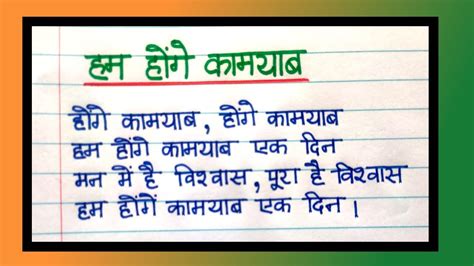 हम होंगे कामयाब
होंगे कामयाब, होंगे कामयाब
हम होंगे कामयाब एक दिन
मन में है विश्वास, पूरा है विश्वास
हम होंगें कामयाब एक दिन।